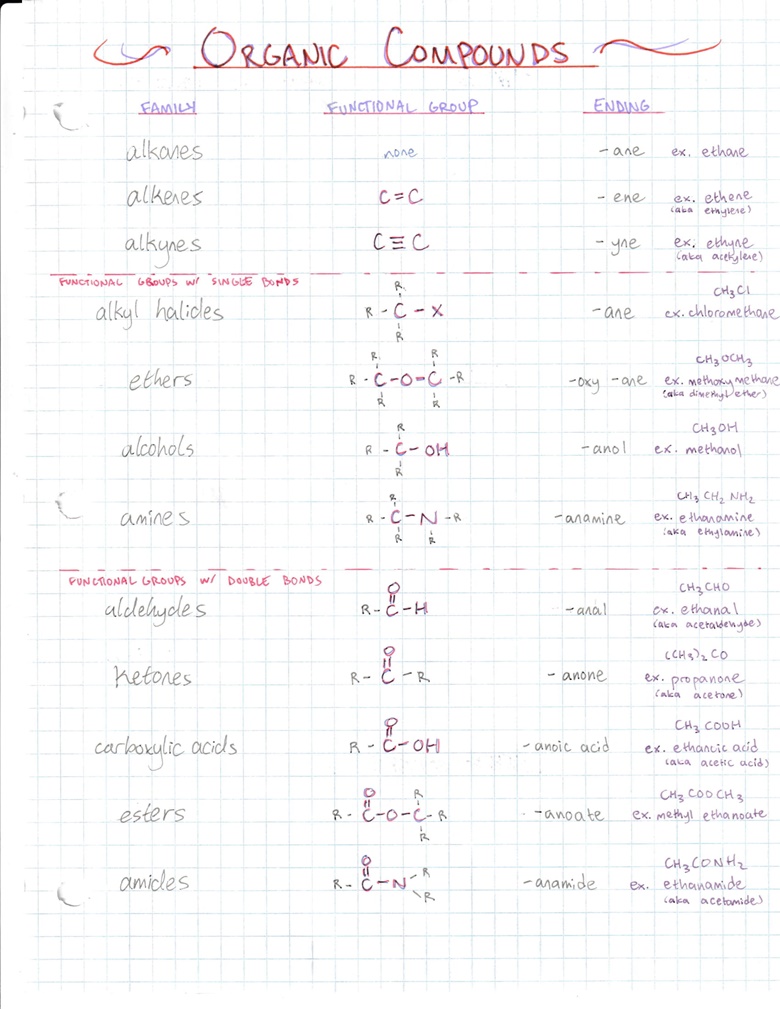 ORGANIC COMPOUNDS
FAMILY FUNCTIONAL GROUP ENDING
alkanes none -ane ex. ethane
alkenes C=C -ene ex. ethene
(aka ethylene)
alkynes C≡C -yne ex. ethyne
(aka acetylene)
FUNCTIONAL GROUPS W/ SINGLE BONDS
R CH3Cl
alkyl halides R-C-X -ane ex. chloromethane
R
R R CH3OCH3
ethers R-C-O-C-R -oxy -ane ex. methoxymethane
R R (aka dimethyl ether)
R CH3OH
alcohols R-C-OH -anol ex. methanol
R
R CH3CH2NH2
amines R-C-N-R -anamine ex. ethanamine
R R (aka ethylamine)
FUNCTIONAL GROUPS W/ DOUBLE BONDS
O CH3CHO
aldehydes R-C-H -anal ex. ethanal
(aka acetaldehyde)
O (CH3)2CO
ketones R-C-R -anone ex. propanone
(aka acetone)
O CH3COOH
carboxylic acids R-C-OH -anoic acid ex. ethanoic acid
(aka acetic acid)
O R CH3COOCH3
esters R-C-O-C-R -anoate ex. methyl ethanoate
R
O R CH3CONH2
amides R-C-N -anamide ex. ethanamide
R (aka acetamide)